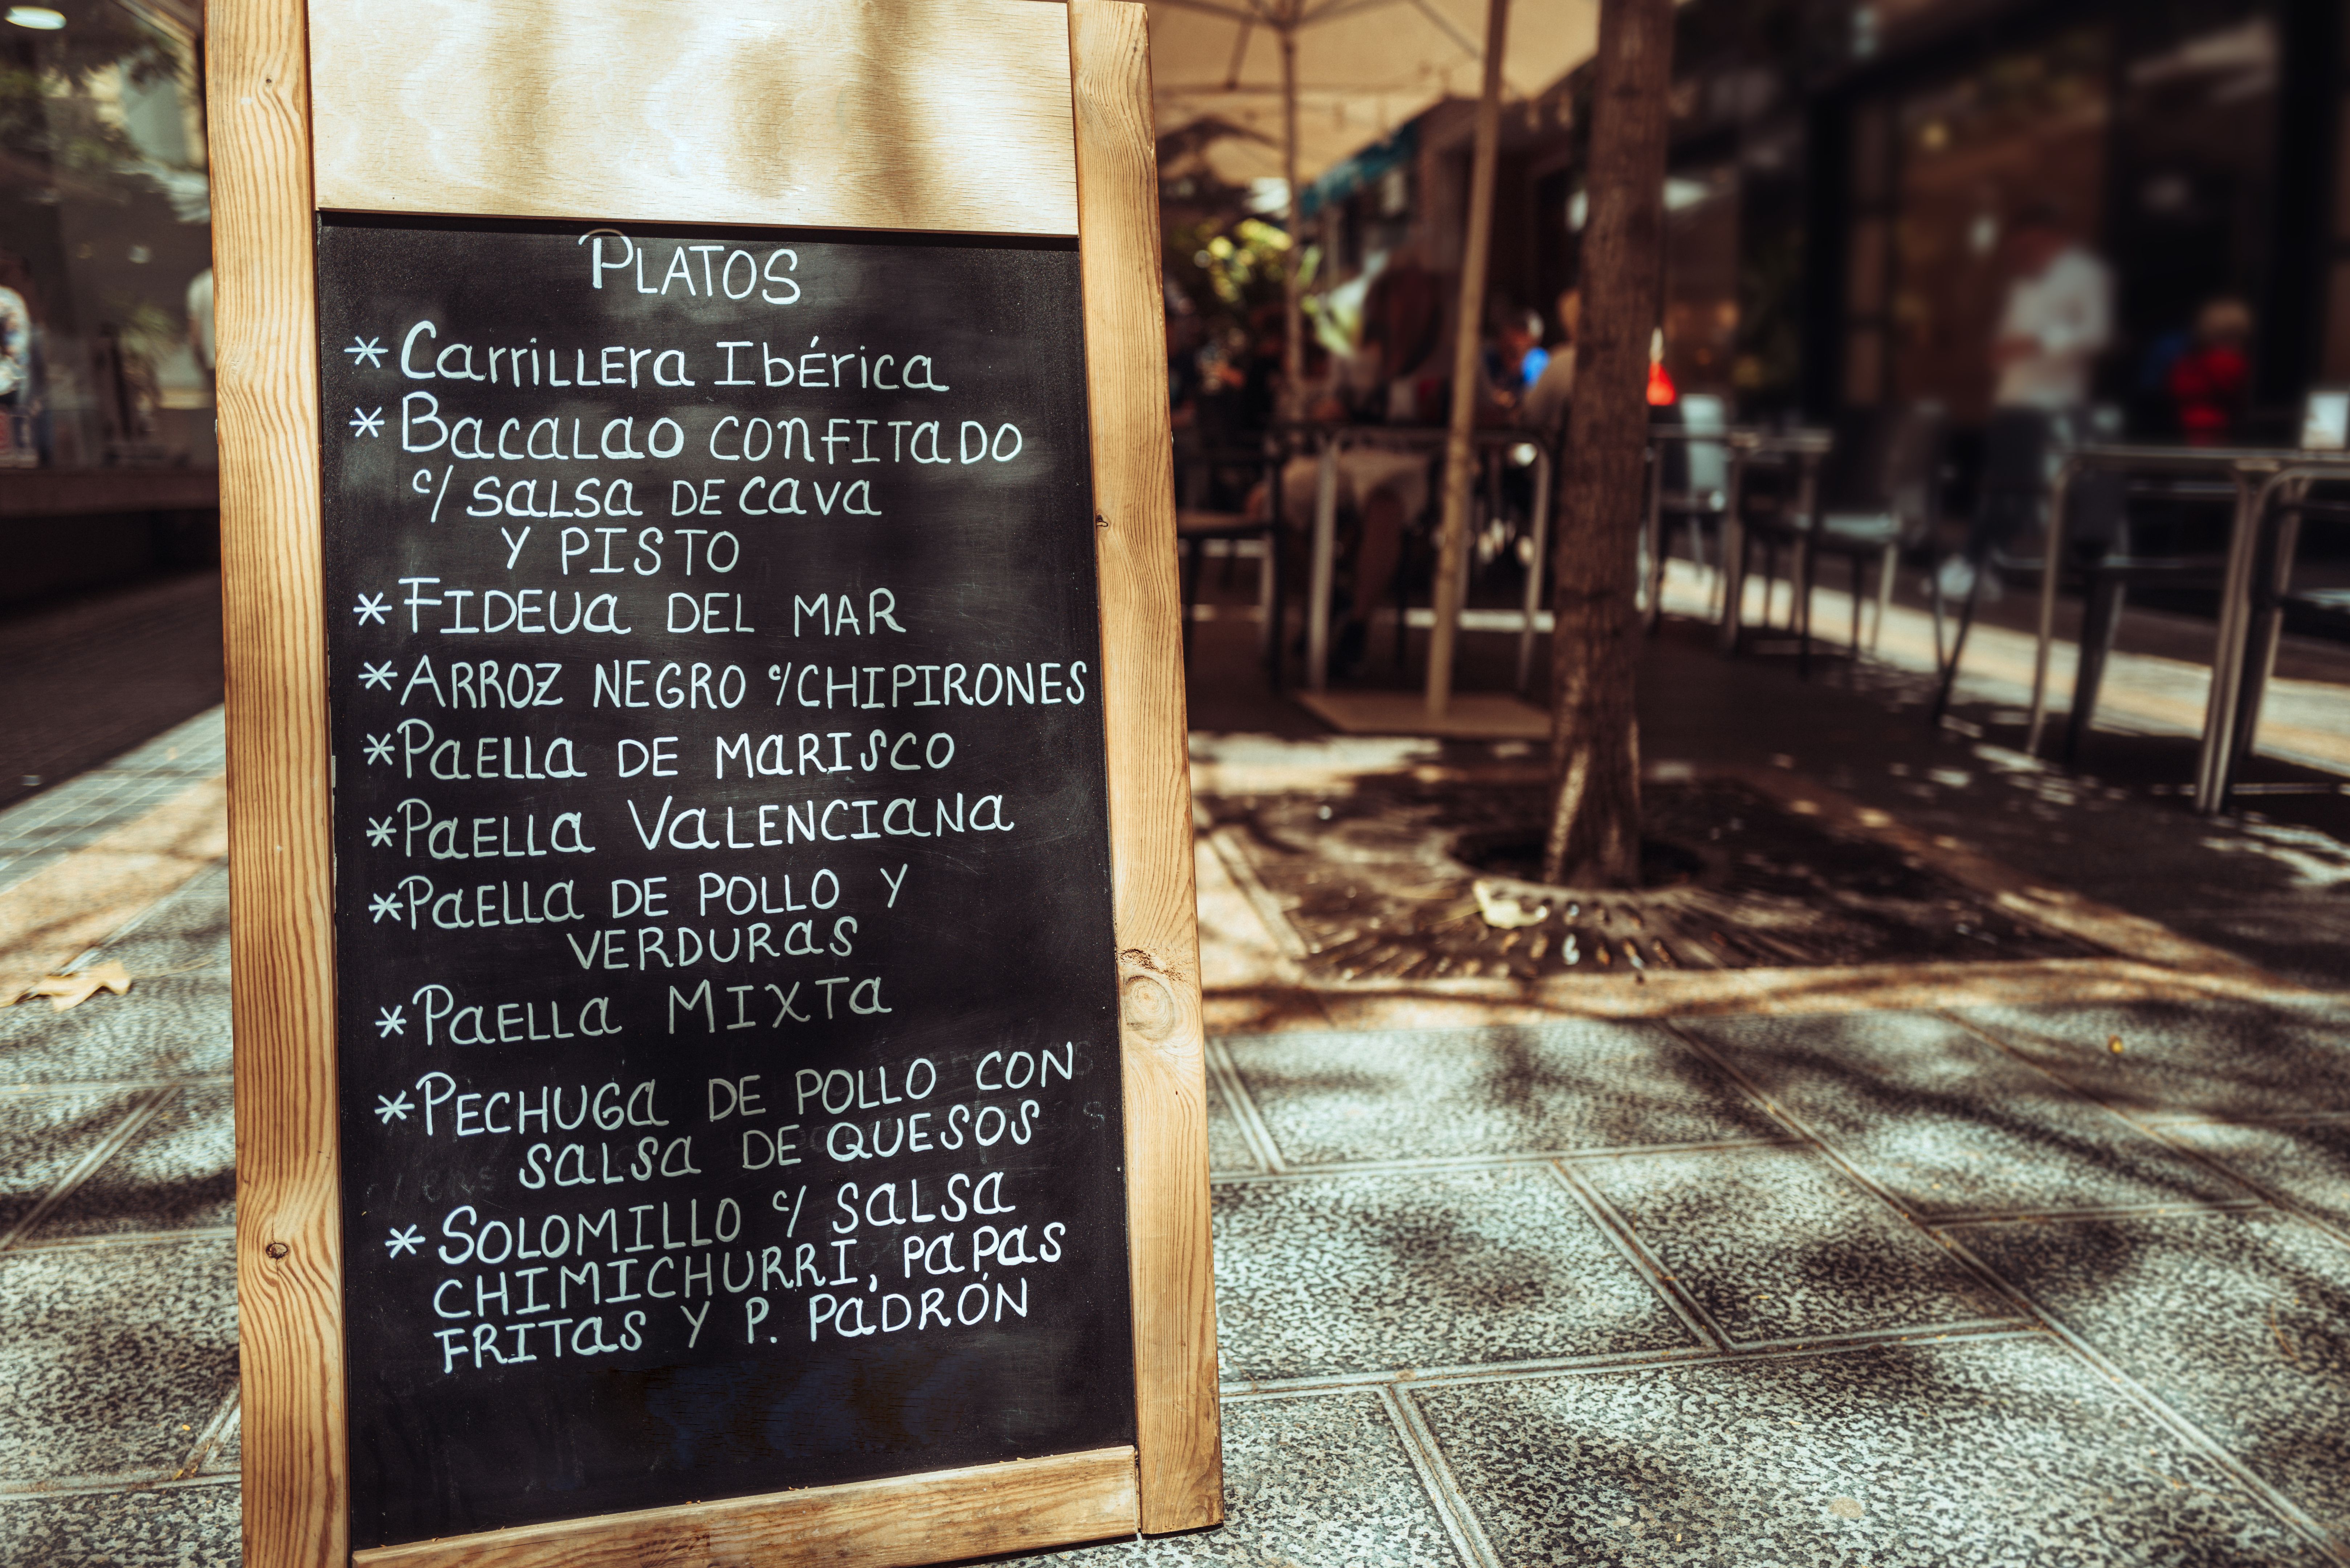 PLATOS
* Carrillera Ibérica
* Bacalao confitado
c/ salsa de cava
y pisto
* Fideua del mar
* Arroz negro c/chipirones
* Paella de marisco
* Paella Valenciana
* Paella de pollo y
verduras
* Paella Mixta
* Pechuga de pollo con
salsa de quesos
* Solomillo c/ salsa
chimichurri, papas
fritas y p. padrón